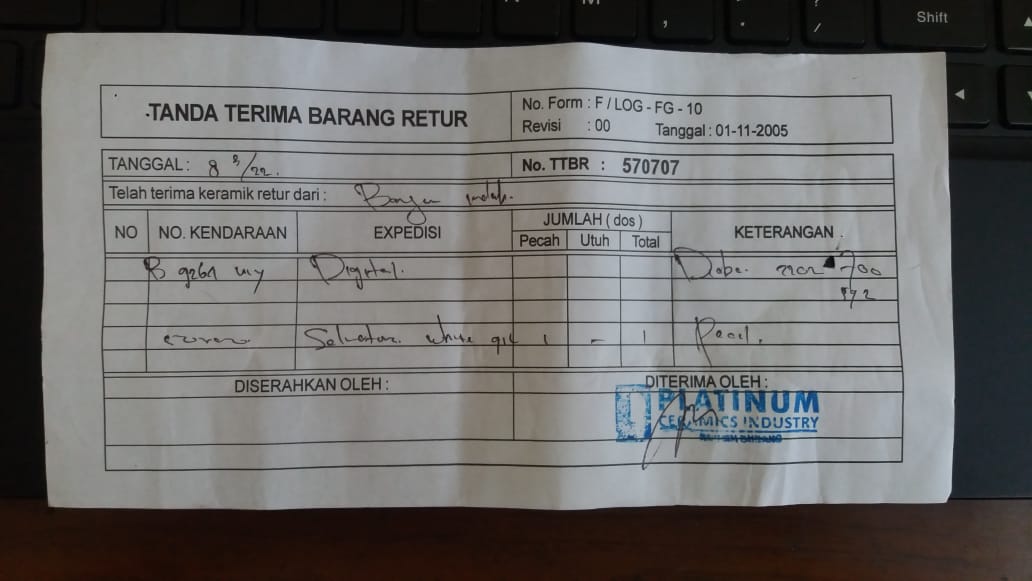 TANDA TERIMA BARANG RETUR
No. Form : F / LOG - FG - 10
Revisi : 00 Tanggal : 01-11-2005
TANGGAL : 8 9/22.
No. TTBR : 570707
Telah terima keramik retur dari : indah.
NO NO. KENDARAAN EXPEDISI JUMLAH ( dos ) KETERANGAN
Pecah Utuh Total
B 9261 Digital. 2202 700
592
white 1 - 1
DISERAHKAN OLEH : DITERIMA OLEH :
PLATINUM
CERAMICS INDUSTRY